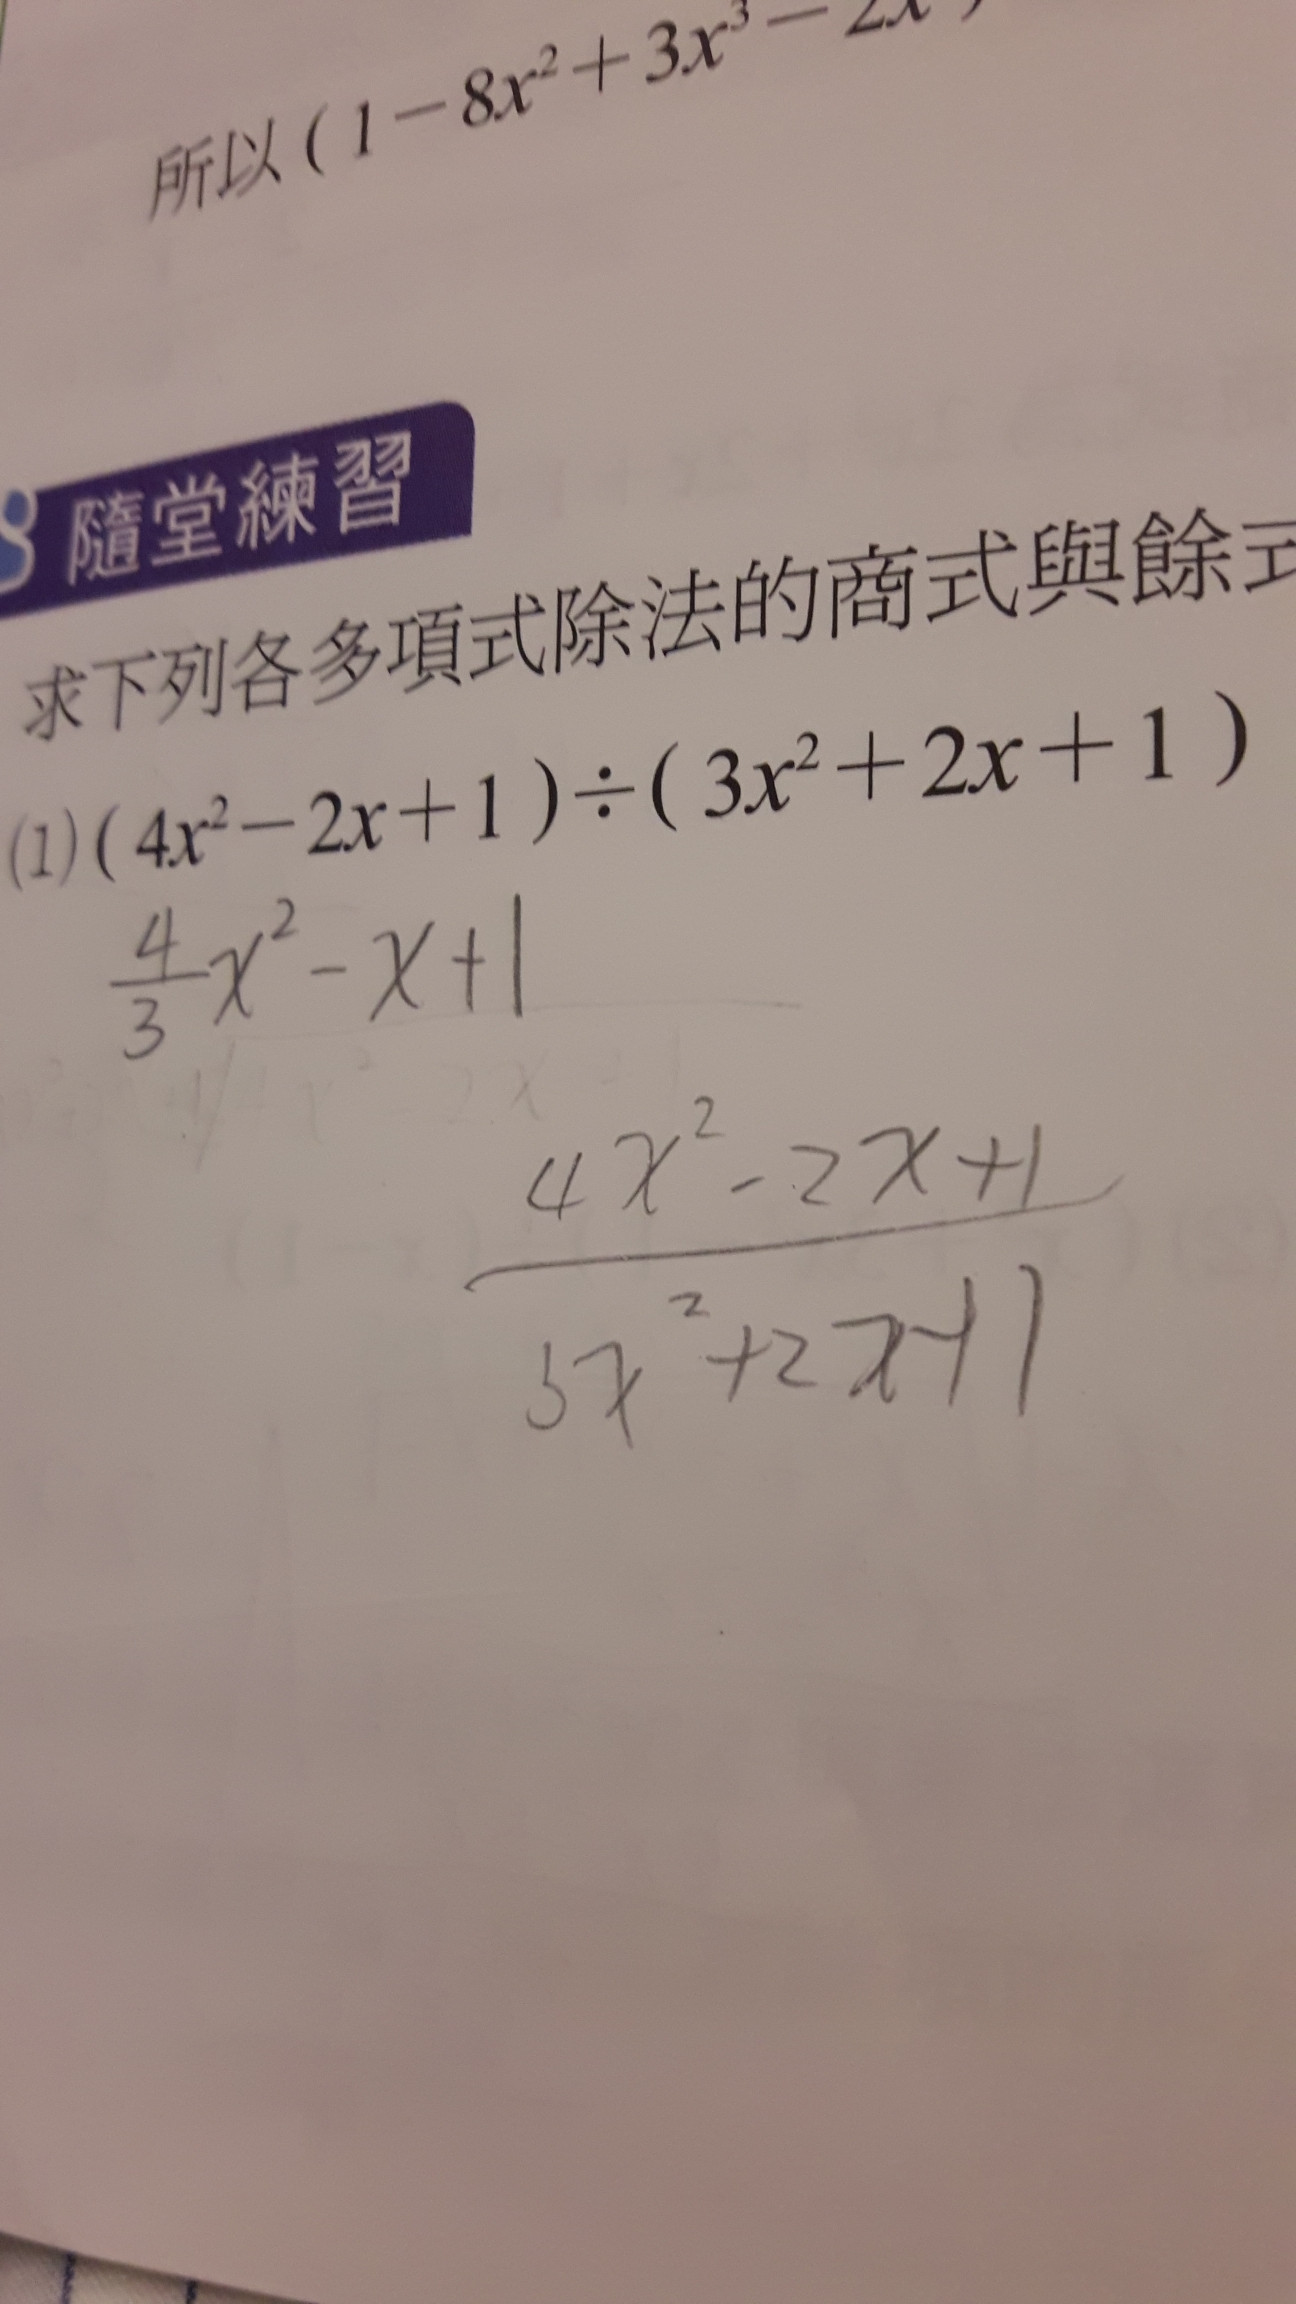 所以 ( 1 − 8x² + 3x³ − 2x
8 隨堂練習
求下列各多項式除法的商式與餘式
(1) ( 4x² − 2x + 1 ) ÷ ( 3x² + 2x + 1 )
4/3 x² - x + 1
4x² - 2x + 1
3x² + 2x + 1